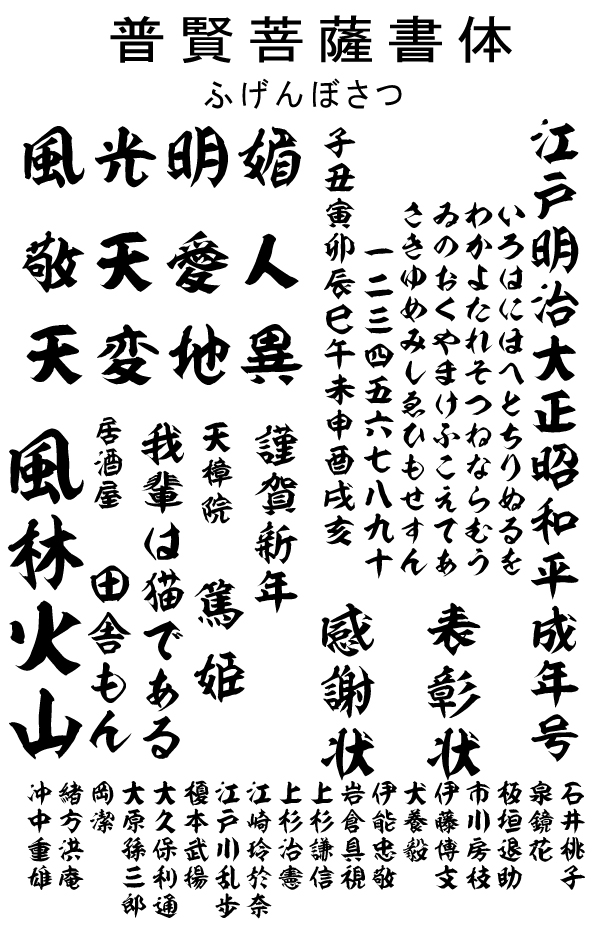 普賢菩薩書体
ふげんぼさつ
江戸明治大正昭和平成年号
いろはにほへとちりぬるを
わかよたれそつねならむう
ゐのおくやまけふこえてあ
さきゆめみしゑひもせすん
一二三四五六七八九十
子丑寅卯辰巳午未申酉戌亥
表彰状
感謝状
風光明媚
敬天愛人
天変地異
謹賀新年
天樟院 篤姫
我輩は猫である
居酒屋 田舎もん
風林火山
石井桃子
泉鏡花
板垣退助
市川房枝
伊藤博文
犬養毅
伊能忠敬
岩倉具視
上杉謙信
上杉治憲
江崎玲於奈
江戸川乱歩
榎本武揚
大久保利通
大原孫三郎
岡潔
緒方洪庵
沖中重雄